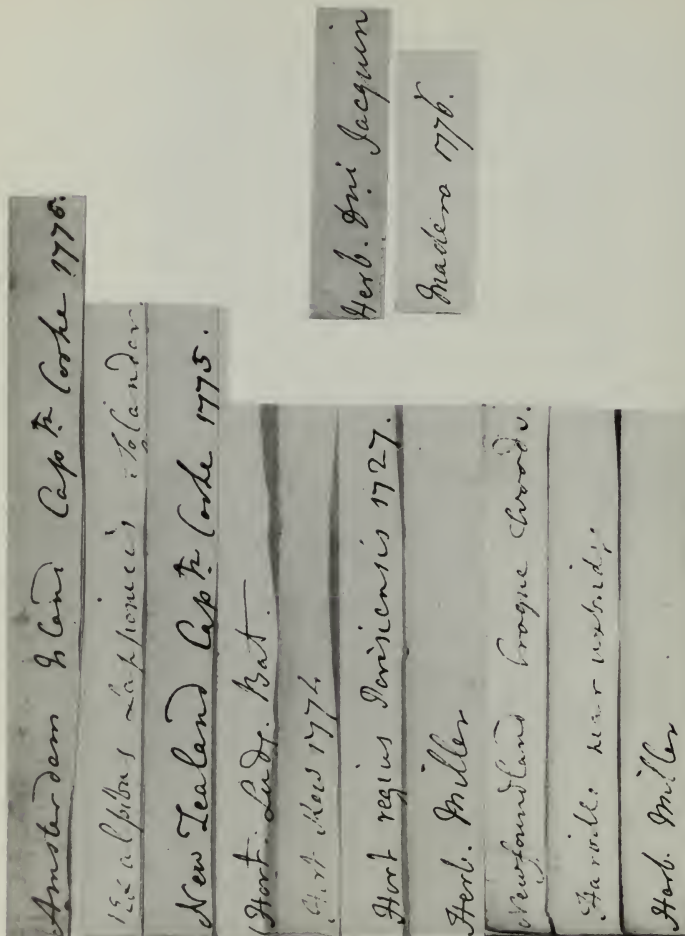 Amsterdam Island Capt.n Cooke 1776.
Ex alpibus Lapponicis Solander.
New Zealand Capt.n Cooke 1775.
Hort. Ludg. Bat.
Hort. Kew 1774
Hort regius Parisiensis 1727.
Herb. Miller
Newfoundland Croque Woods.
near uxbridge
Herb. Miller
Herb. Dni Jacquin
Madeira 1776.